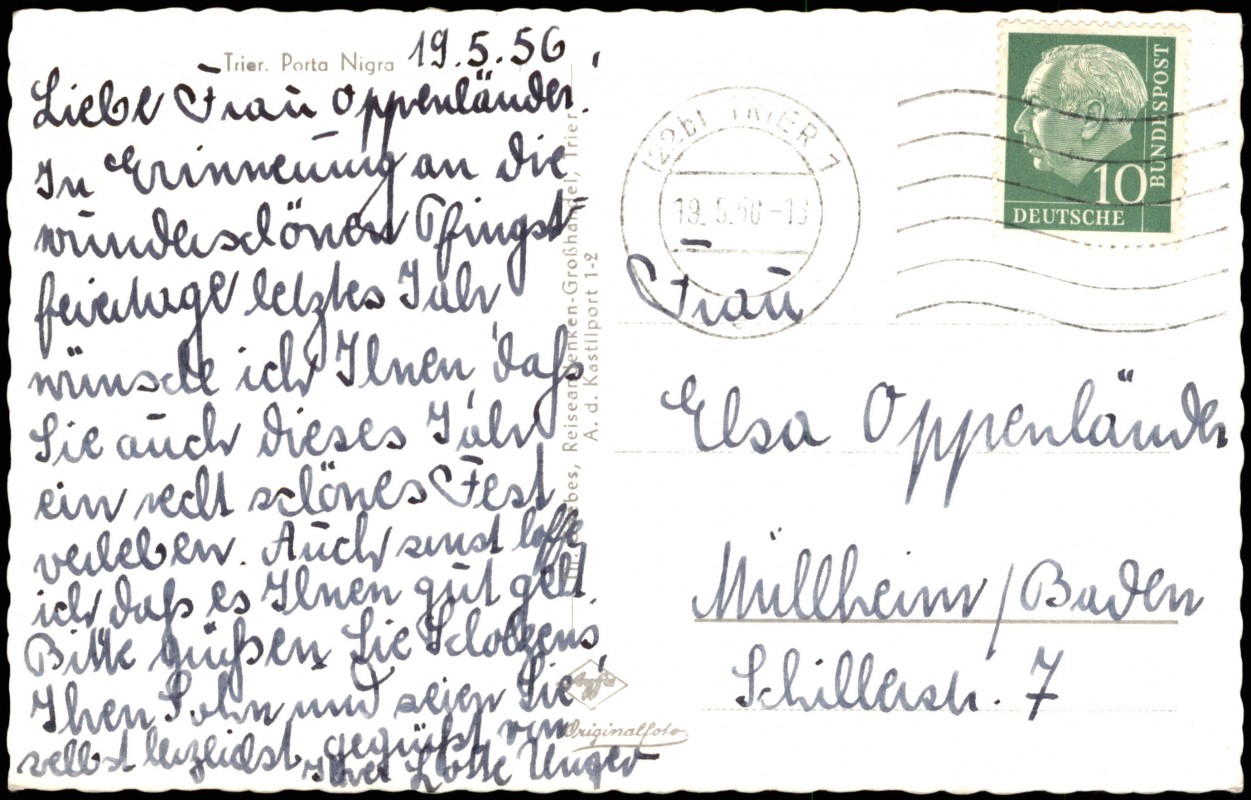 Trier. Porta Nigra
19.5.56
Liebe Frau Oppenländer.
In Erinnerung an die
wunderschönen Pfingst-
feiertage letztes Jahr
wünsche ich Ihnen, daß
Sie auch dieses Jahr
ein recht schönes Fest
verleben. Auch sonst hoffe
ich, daß es Ihnen gut geht.
Bitte grüßen Sie Scholzens,
Ihren Sohn und seien Sie
selbst herzlichst gegrüßt von
Ihrer Lotte Unger
Reiseandenken-Großhandel, Trier
A. d. Kastilport 1-2
Agfa
Originalfoto
(22b) TRIER 1
19.5.56-13
DEUTSCHE
BUNDESPOST
10
Frau
Elsa Oppenländer
Müllheim/Baden
Schillerstr. 7